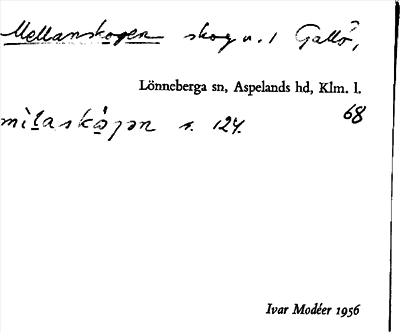 Mellanskogen skog u. 1 Gallö,
Lönneberga sn, Aspelands hd, Klm. l.
68
s. 124.
Ivar Modéer 1956